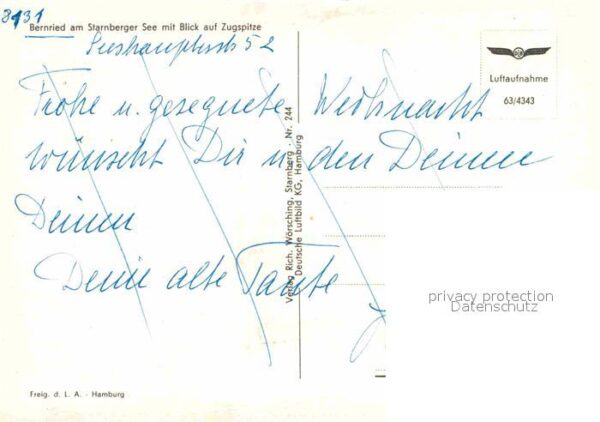 8131
Bernried am Starnberger See mit Blick auf Zugspitze
Seeshaupterstr 52
Frohe u. gesegnete Weihnacht
wünscht Dir u. den Deinen
Deinen
Deine alte Tante
Verlag Rich. Wörsching, Starnberg · Nr. 244
Deutsche Luftbild KG, Hamburg
Luftaufnahme
63/4343
privacy protection
Datenschutz
Freig. d. L. A. - Hamburg